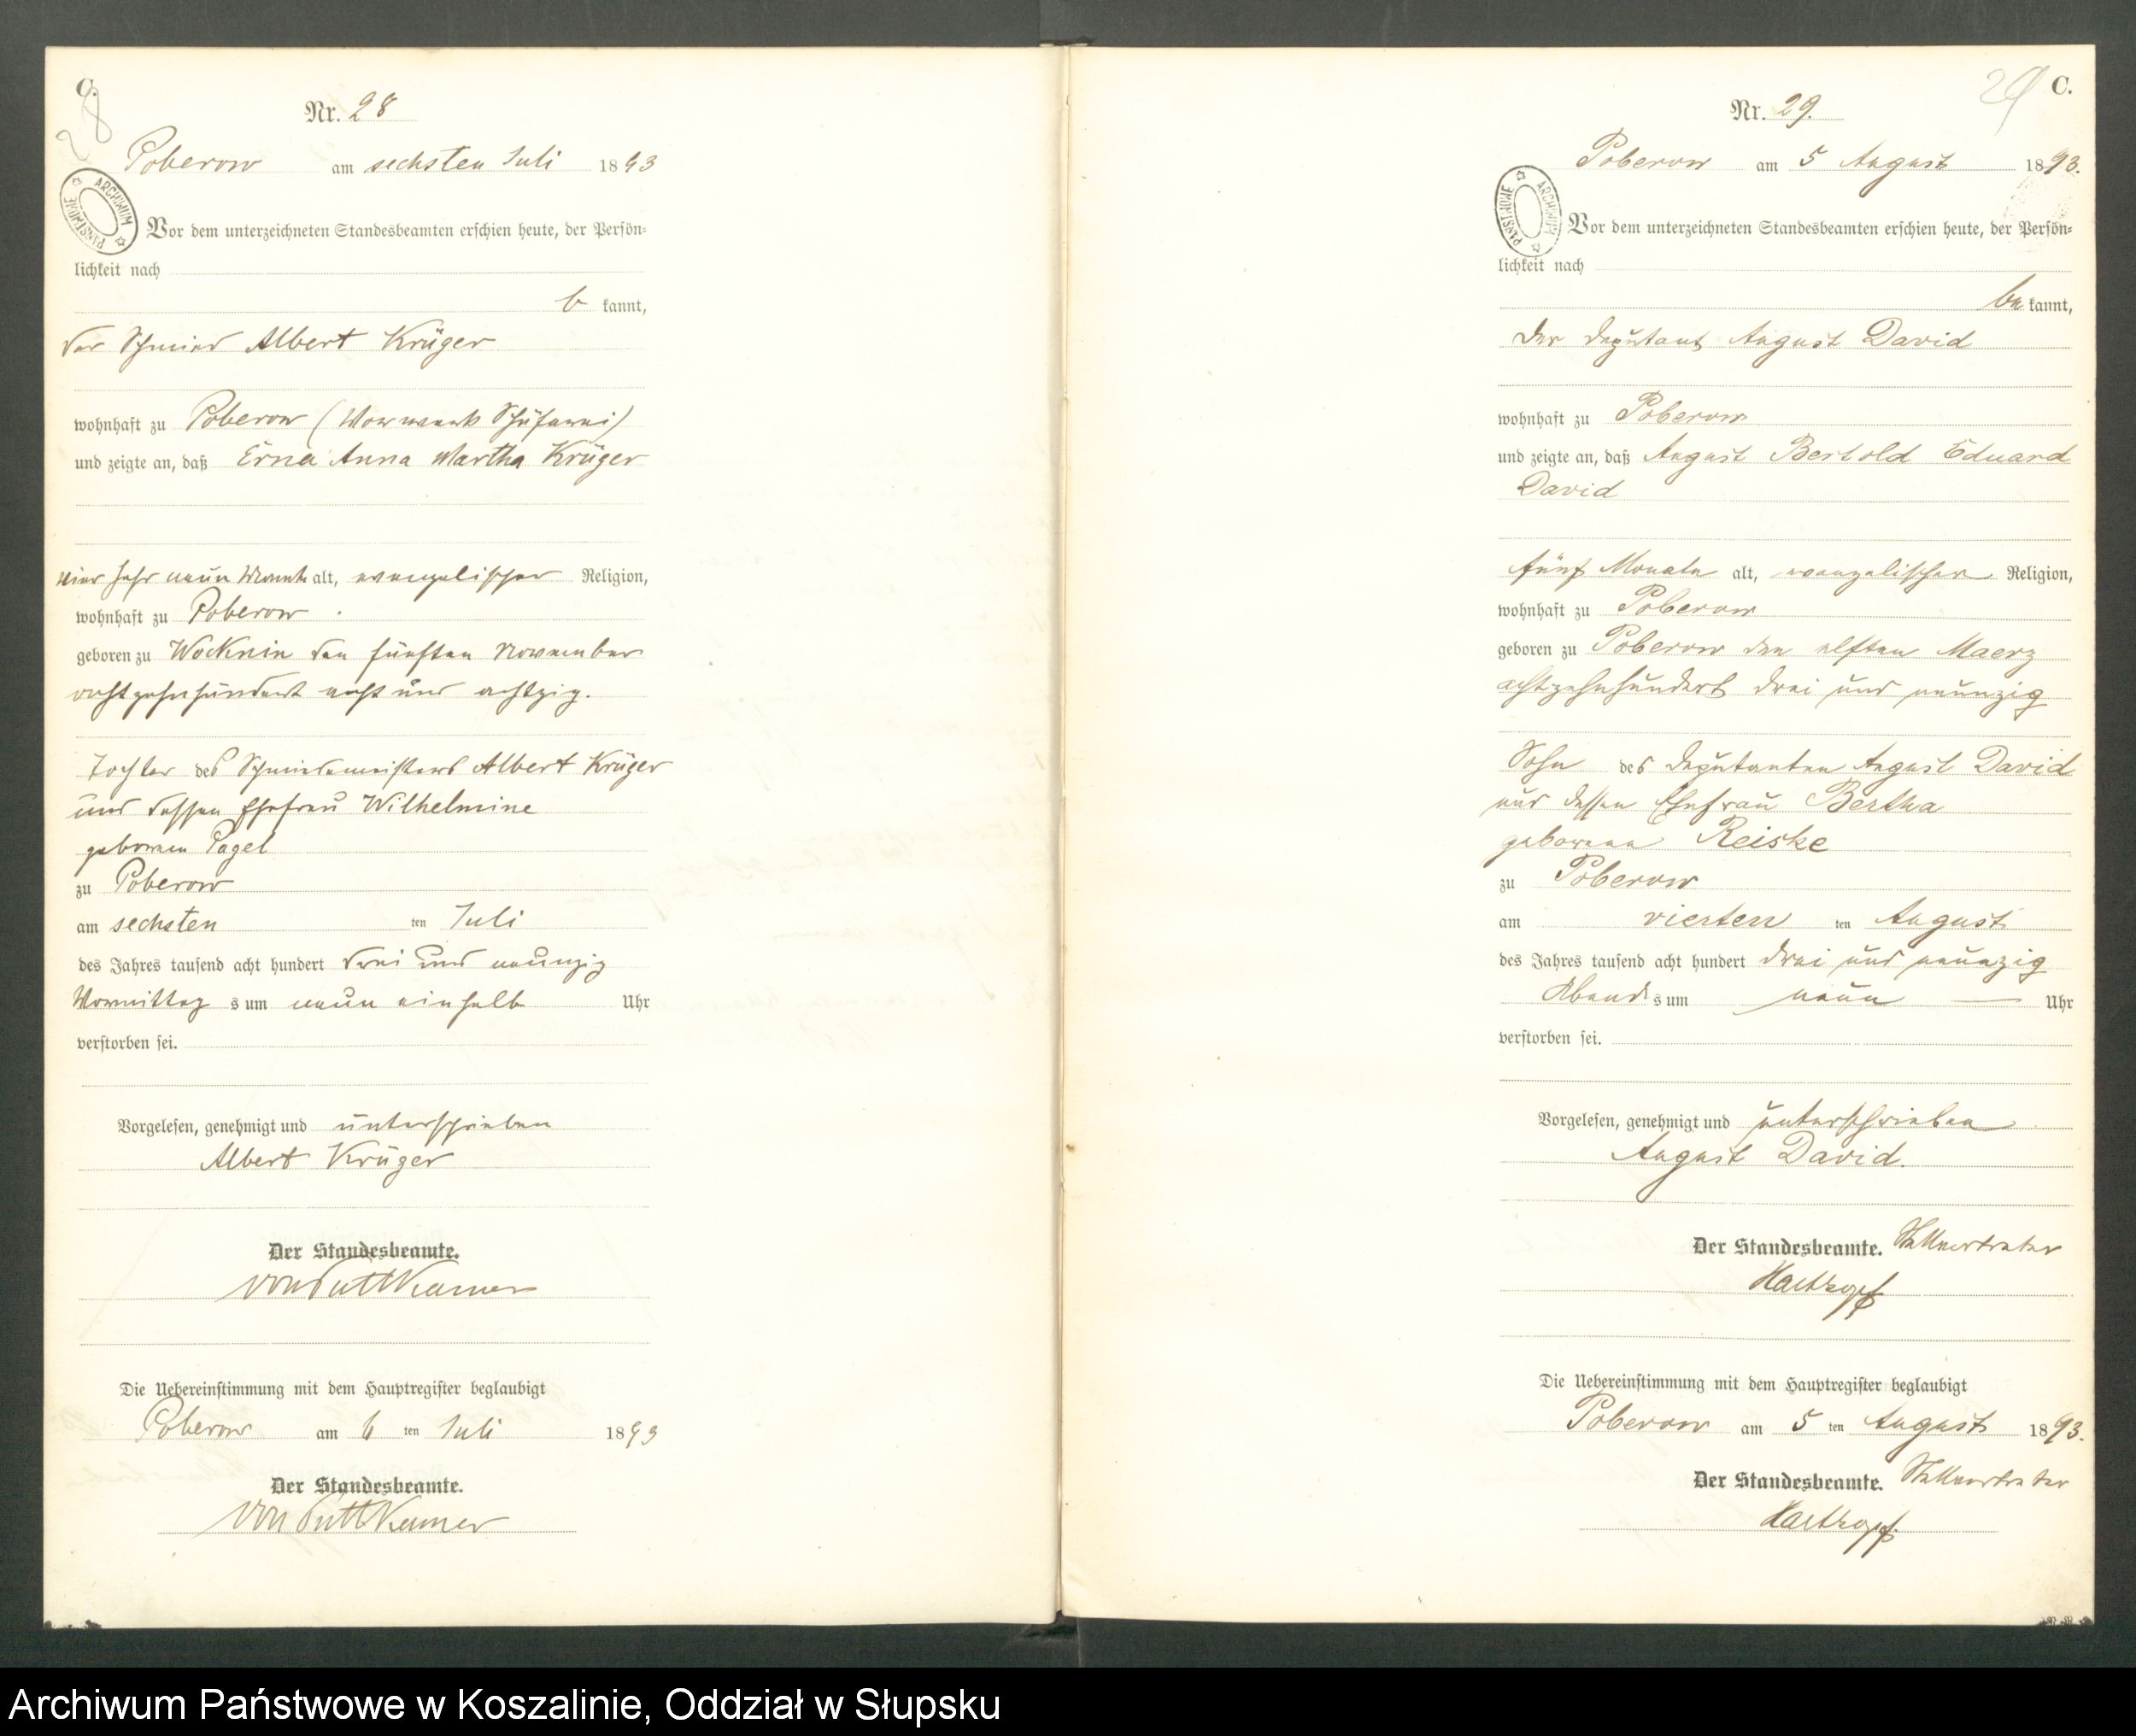 C.
28
Nr. 28
Poberow am sechsten Juli 1893
ARCHIWUM PAŃSTWOWE
Vor dem unterzeichneten Standesbeamten erschien heute, der Persön-
lichkeit nach
b kannt,
der Schmied Albert Krüger
wohnhaft zu Poberow (Vorwerk Schäferei)
und zeigte an, daß Erna Anna Martha Krüger
vier Jahr neun Monate alt, evangelischer Religion,
wohnhaft zu Poberow
geboren zu Wocknin den fünften November
achtzehnhundert acht und achtzig.
Tochter des Schmiedemeisters Albert Krüger
und dessen Ehefrau Wilhelmine
geborenen Pagel
zu Poberow
am sechsten ten Juli
des Jahres tausend acht hundert drei und neunzig
Vormittag s um neun einhalb Uhr
verstorben sei.
Vorgelesen, genehmigt und unterschrieben
Albert Krüger
Der Standesbeamte.
von Puttkamer
Die Uebereinstimmung mit dem Hauptregister beglaubigt
Poberow am 6 ten Juli 1893
Der Standesbeamte.
von Puttkamer
29 C.
Nr. 29.
Poberow am 5 August 1893.
ARCHIWUM PAŃSTWOWE
Vor dem unterzeichneten Standesbeamten erschien heute, der Persön-
lichkeit nach
be kannt,
der Deputant August David
wohnhaft zu Poberow
und zeigte an, daß August Bertold Eduard
David
fünf Monate alt, evangelischer Religion,
wohnhaft zu Poberow
geboren zu Poberow den elften Maerz
achtzehnhundert drei und neunzig
Sohn des Deputanten August David
und dessen Ehefrau Bertha
geborene Reiske
zu Poberow
am vierten ten August
des Jahres tausend acht hundert drei und neunzig
Abend s um neun — Uhr
verstorben sei.
Vorgelesen, genehmigt und unterschrieben
August David.
Der Standesbeamte. Stellvertreter
Hartkopf
Die Uebereinstimmung mit dem Hauptregister beglaubigt
Poberow am 5 ten August 1893.
Der Standesbeamte. Stellvertreter
Hartkopf
Archiwum Państwowe w Koszalinie, Oddział w Słupsku